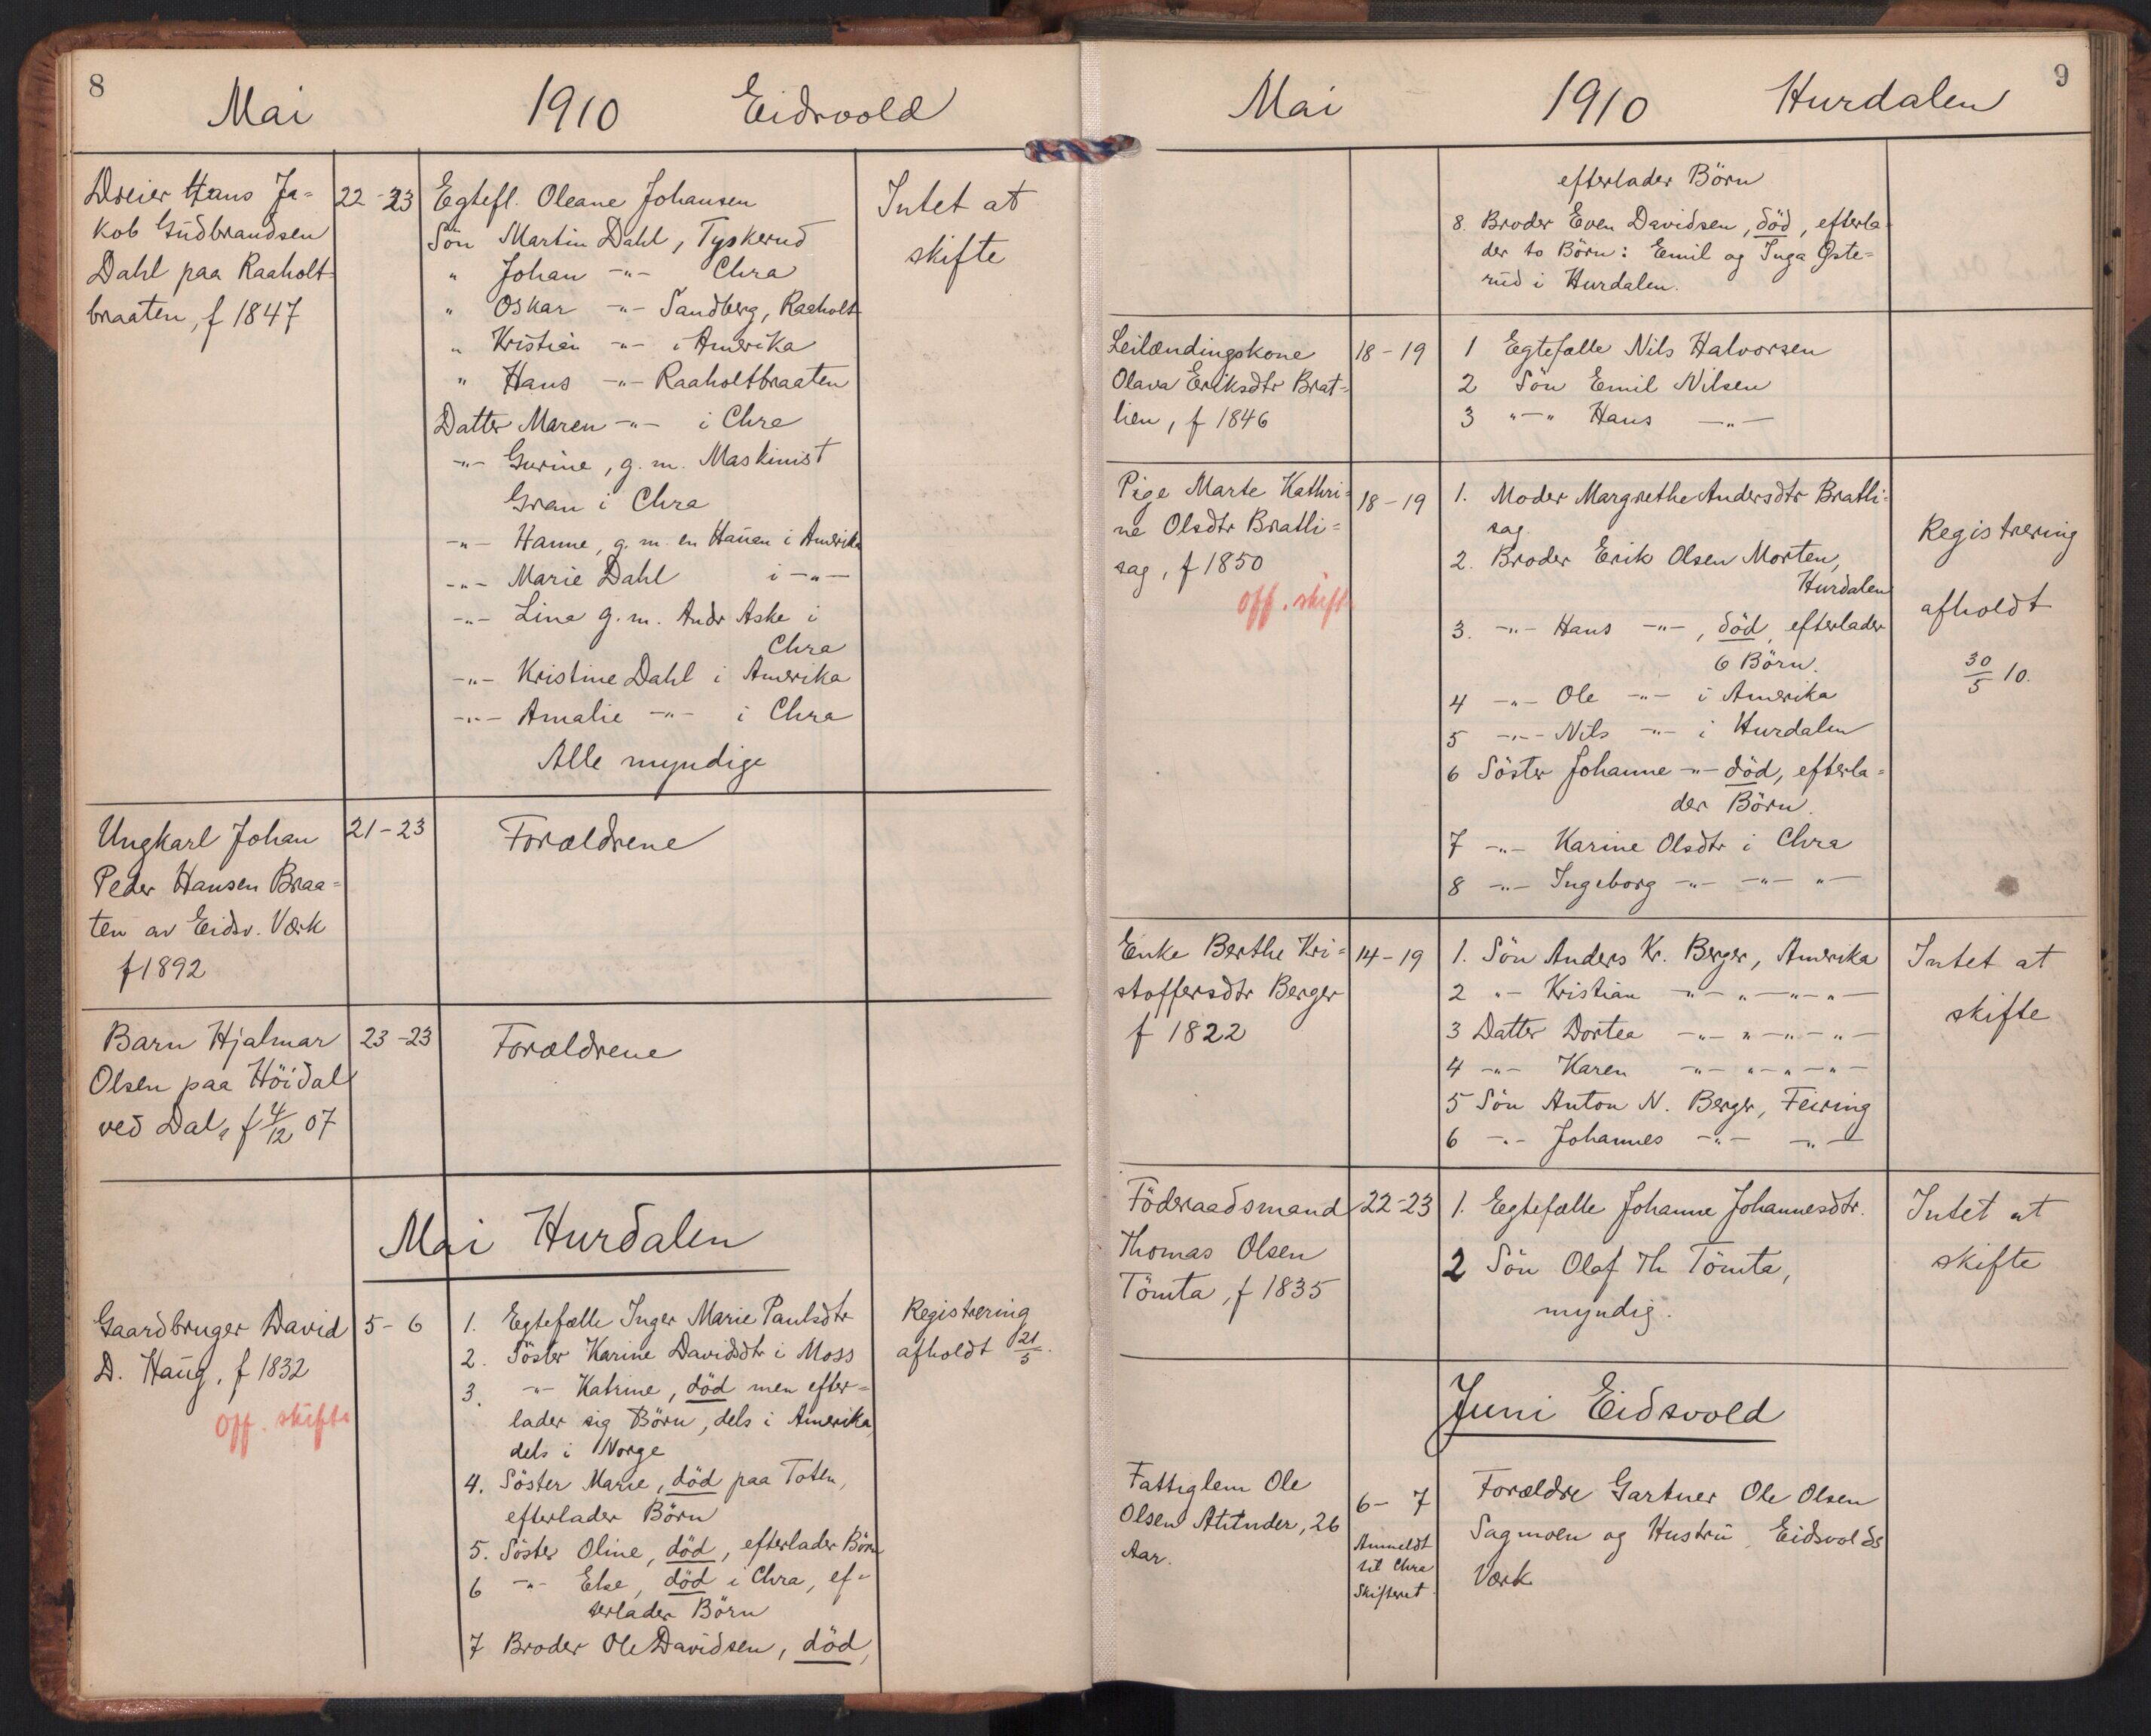 8
Mai 1910 Eidsvold
Dreier Hans Ja=
kob Gudbrandsen
Dahl paa Raaholt=
braaten, f 1847
22-23
Egtefl. Oleane Johansen
Sön Martin Dahl, Tyskerud
" Johan -"- Chra
" Oskar -"- Sandberg, Raaholt
" Kristian -"- i Amerika
" Hans -"- Raaholtbraaten
Datter Maren -"- i Chra
-"- Gurine, g. m. Maskinist
Gran i Chra
-"- Hanne, g. m. en Hauen i Amerika
-"- Marie Dahl i -"-
-"- Lina g. m. Andr Aske i
Chra
-"- Kristine Dahl i Amerika
-"- Amalie -"- i Chra
Alle myndige
Intet at
skifte
Ungkarl Johan
Peder Hansen Braa=
ten av Eidsv. Værk
f 1892
21-23
Forældrene
Barn Hjalmar
Olsen paa Höidal
ved Dal, f 4/12 07
23-23
Forældrene
Mai Hurdalen
Gaardbruger David
D. Haug, f 1832
Off. skifte
5-6
1. Egtefælle Inger Marie Paulsdtr
2. Söster Karine Davidsdtr i Moss
3. -"- Katrine, död men efter=
lader sig Börn, dels i Amerika,
dels i Norge
4. Söster Marie, död paa Toten,
efterlader Börn
5. Söster Oline, död, efterlader Börn
6 -"- Else, död i Chra, ef=
terlader Börn
7 Broder Ole Davidsen, död,
Registrering
afholdt 21/5.
9
Mai 1910 Hurdalen
efterlader Börn
8. Broder Even Davidsen, död, efterla=
der to Börn: Emil og Inga Øste=
rud i Hurdalen.
Leilændingskone
Olava Eriksdtr Brat=
lien, f 1846
18-19
1 Egtefælle Nils Halvorsen
2 Sön Emil Nilsen
3 "-" Hans -"-
Pige Marte Kathri=
ne Olsdtr Bratli=
sag, f 1850
Off. skifte
18-19
1. Moder Margrethe Andersdtr Bratli=
sag.
2. Broder Erik Olsen Morten,
Hurdalen
3. -"- Hans -"-, död, efterlader
6 Börn.
4 -"- Ole -"- i Amerika
5 -"- Nils -"- i Hurdalen
6 Söster Johanne -"- död, efterla=
der Börn.
7 -"- Karine Olsdtr i Chra
8 -"- Ingeborg -"- -"- "-
Registrering
afholdt
30/5 10.
Enke Berthe Kri=
stoffersdtr Berger
f 1822
14-19
1. Sön Anders Kr. Berger, Amerika
2 "- Kristian -"- "-"-"-
3 Datter Dortea -"- "-"-"-
4 -"- Karen -"- "-"-"-
5 Sön Anton N. Berger, Feiring
6 -"- Johannes -"- -"-
Intet at
skifte
Föderaadsmand
Thomas Olsen
Tömta, f 1835
22-23
1. Egtefælle Johanne Johannesdtr.
2 Sön Olaf Th Tömta,
myndig.
Intet at
skifte
Juni Eidsvold
Fattiglem Ole
Olsen, 26
Aar.
6- 7
Anmeldt
til Chra
Skifteret
Forældre Gartner Ole Olsen
Sagmoen og Hustru, Eidsvolds
Værk